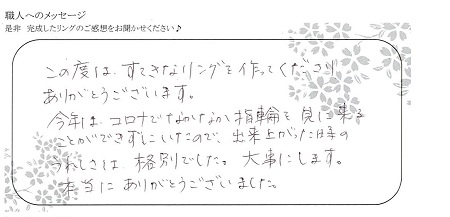 職人へのメッセージ
是非 完成したリングのご感想をお聞かせください♪
この度は、すてきなリングを作ってくださり
ありがとうございます。
今年は、コロナでなかなか指輪を見に来る
ことができずにいたので、出来上がった時の
うれしさは、格別でした。大事にします。
本当にありがとうございました。